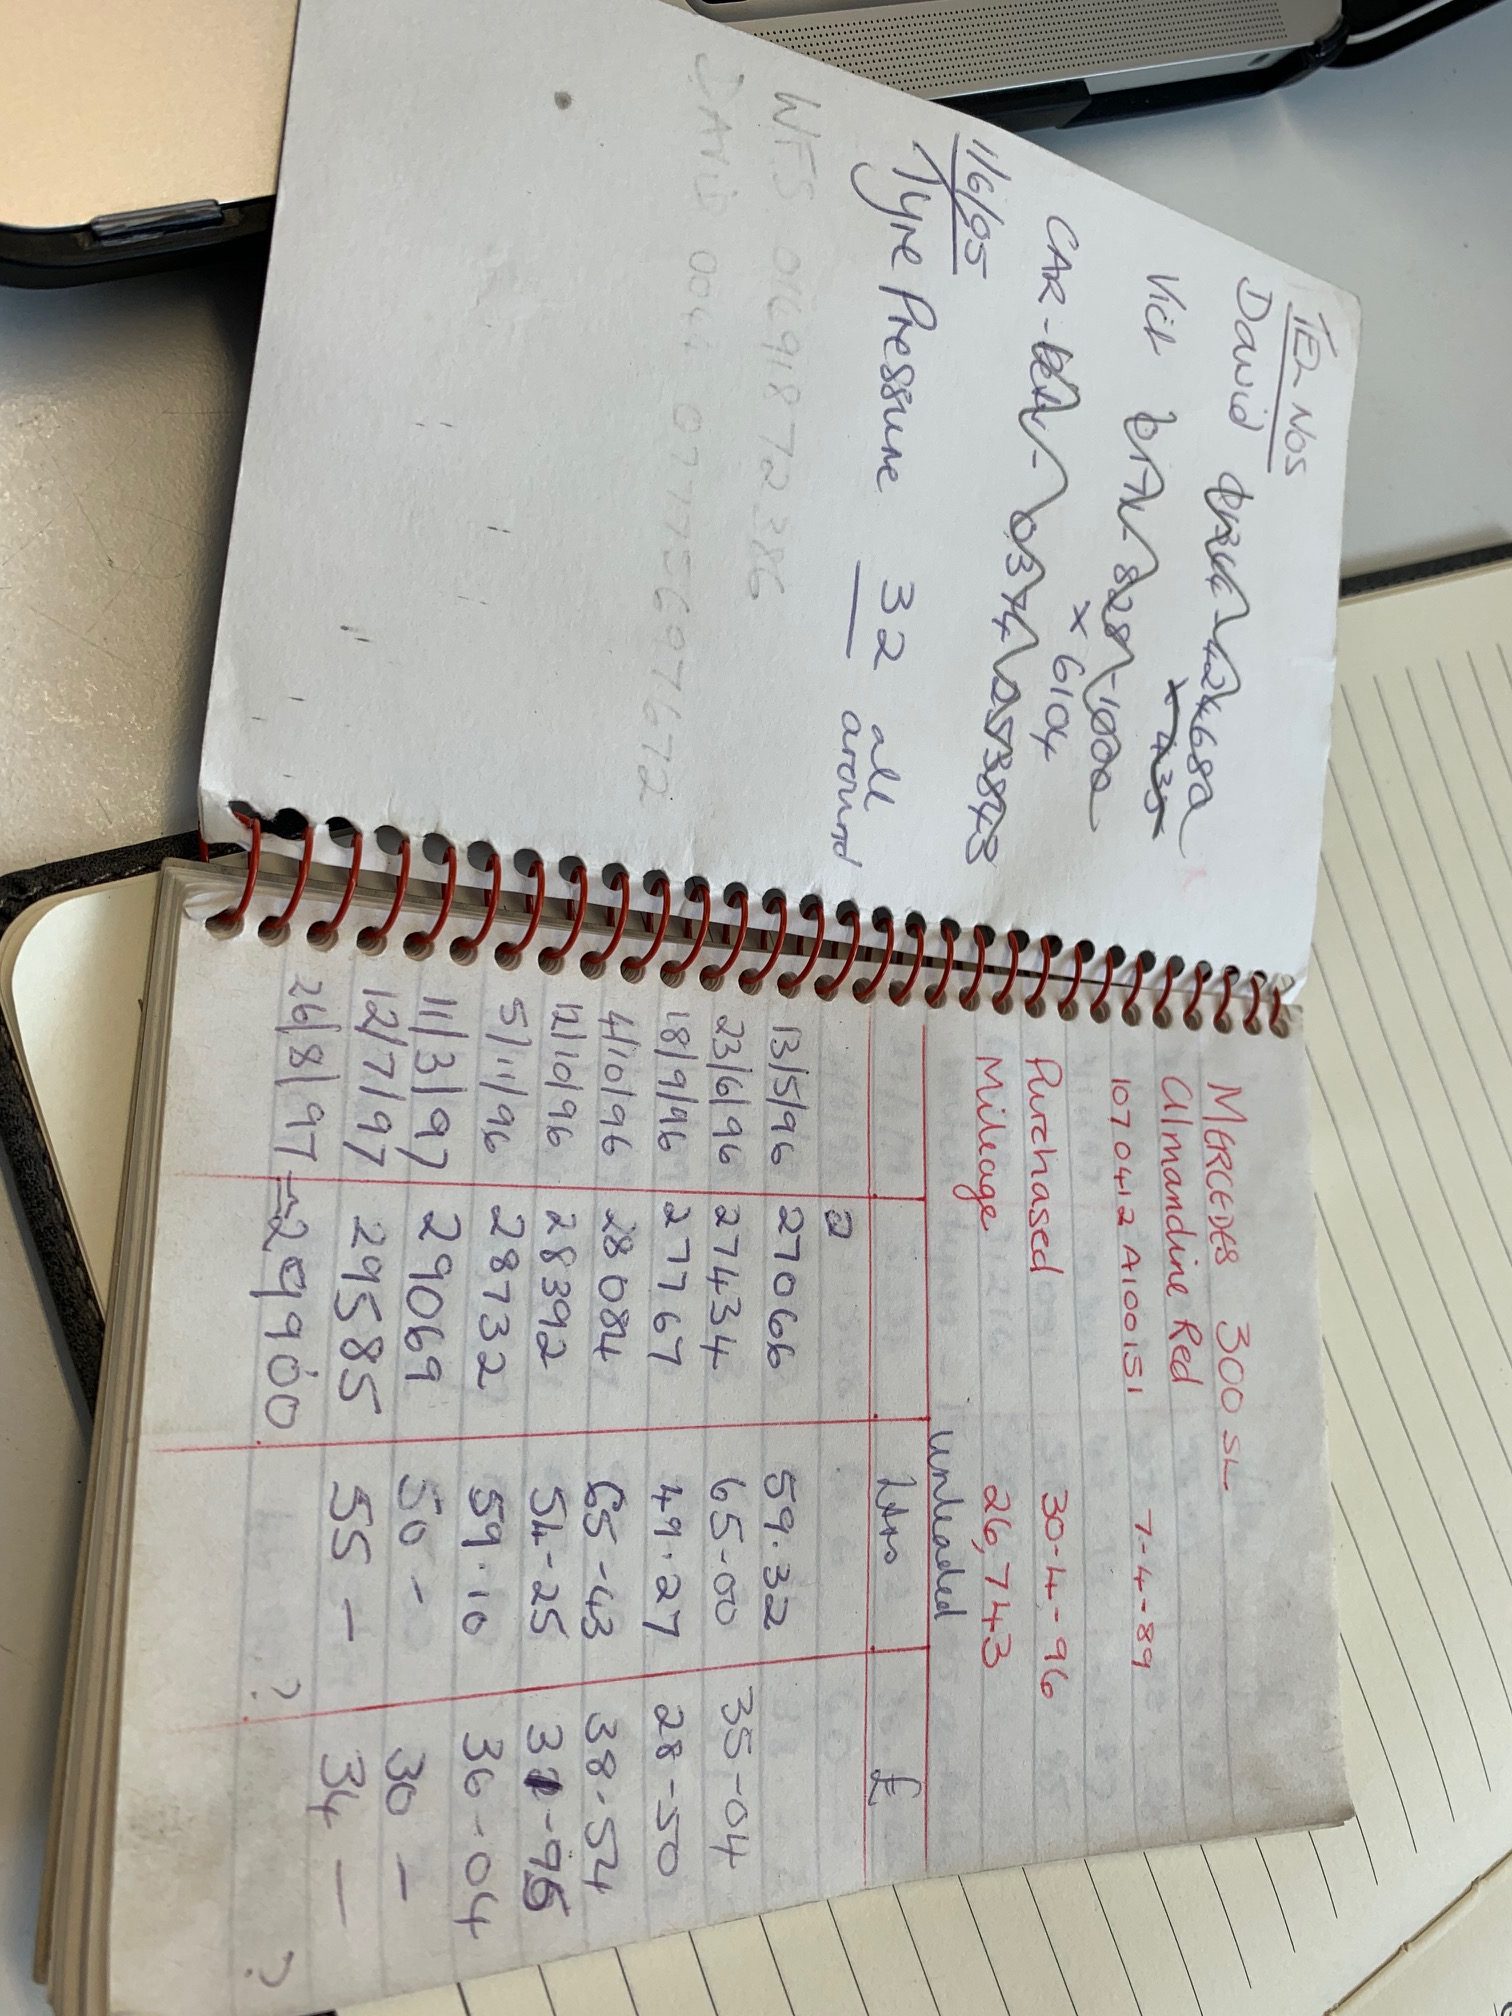 TEL NOS
David
Vick
x 6104
CAR-
11/6/95
Tyre Pressure 32 all
around
WFS 01691872386
DAVID 0044 07775697672
MERCEDES 300 SL
Almandine Red
1070412A100151 7-4-89
Purchased 30-4-96
Mileage 26,743
Unleaded
Ltrs £
13/5/96 27066 59.32
23/6/96 27434 65-00 35-04
18/9/96 27767 49.27 28-50
4/10/96 28084 65-43 38-54
12/10/96 28392 54-25 31-95
5/11/96 28732 59.10 36-04
11/3/97 29069 50 - 30 -
12/7/97 29585 55 - 34 -
26/8/97 - 29900 ? ?